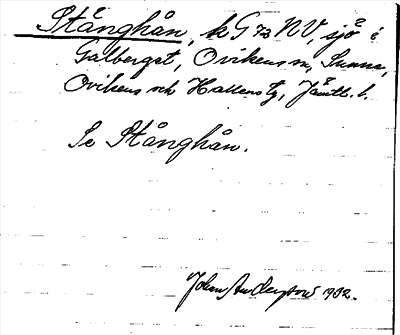 Stånghån, k G 73 NV, sjö i
Galberget, Ovikens sn, Sunne,
Ovikens och Hallens tg, Jämtl. l.
Se Stånghån.
1932.